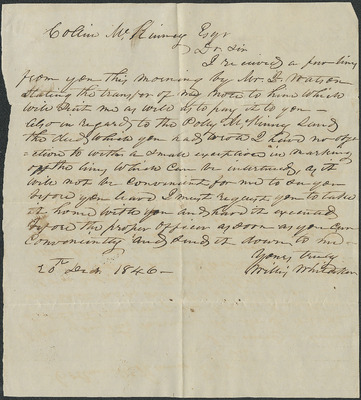 Colin McKinney Esqr
Dr. Sir
I received a few lines
from you this morning by Mr. D. Watson
stating the transfer of my note to him which
will suit me as well as to pay it to you -
also in regard to the Polly McKinney land
the deed which you had wrote I have no obje
ction to with a small exception in marking
off the line, which can be inserted, as it
will not be convenient for me to see you
before you leave I must request you to take
it home with you and have it executed
before the proper officer as soon as you can
conveniently and send it down to me -
Yours truly
20th Decr 1846 -